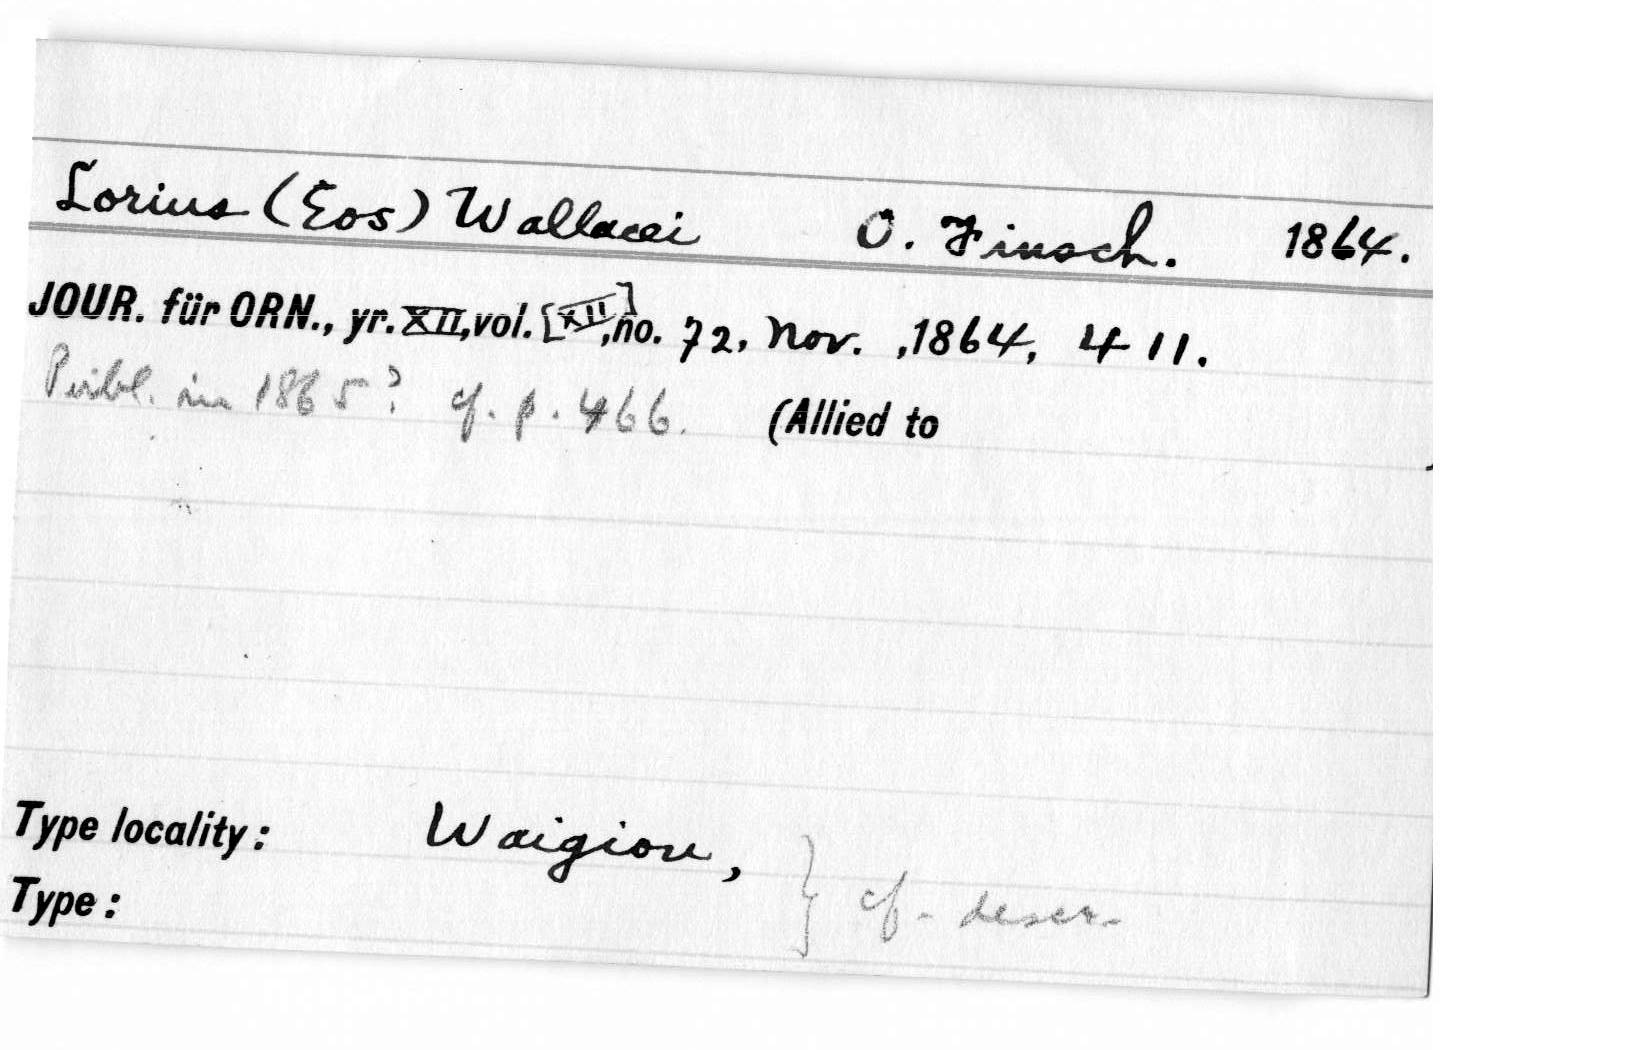 Lorius (Eos) Wallacei O. Finsch. 1864.
JOUR. für ORN., yr. XII, vol. [XII], no. 72, Nov. , 1864, 411.
Publ. in 1865? cf. p. 466. (Allied to )
Type locality: Waigiou, } cf. descr.
Type: